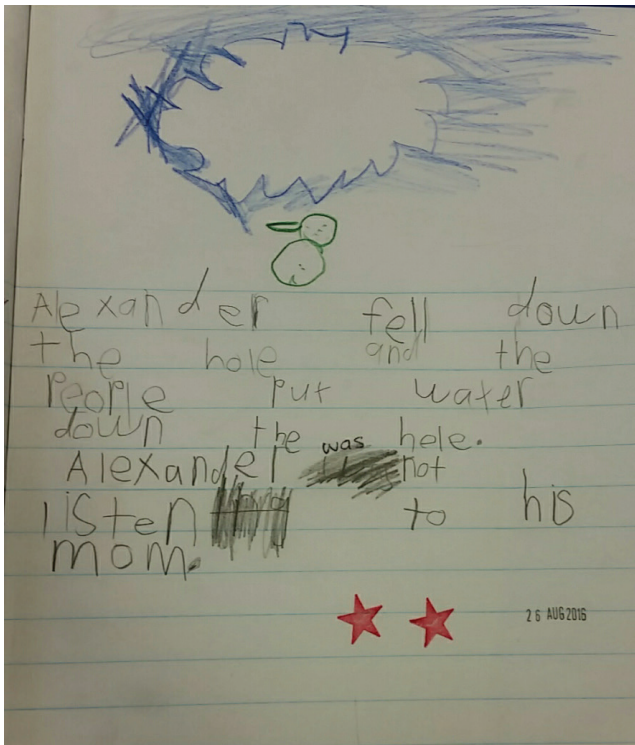 Alexander fell down
the hole and the
people put water
down the hole.
Alexander was not
listen to his
mom.
26 AUG 2016